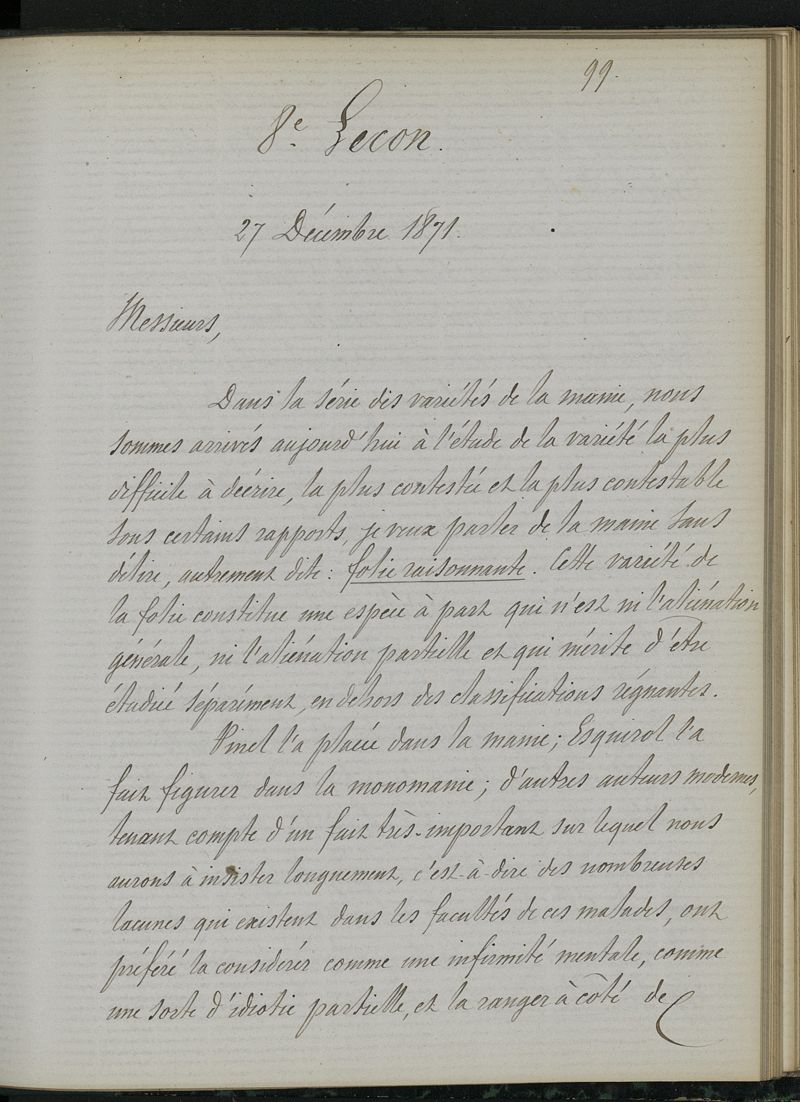 99.
8e. Leçon.
27 Décembre 1871.
Messieurs,
Dans la série des variétés de la manie, nous
sommes arrivés aujourd'hui à l'étude de la variété la plus
difficile à décrire, la plus contestée et la plus contestable
sous certains rapports, je veux parler de la manie sans
délire, autrement dite : folie raisonnante. Cette variété de
la folie constitue une espèce à part qui n'est ni l'aliénation
générale, ni l'aliénation partielle et qui mérite d'être
étudiée séparément, en dehors des classifications régnantes.
Pinel l'a placée dans la manie ; Esquirol l'a
fait figurer dans la monomanie ; d'autres auteurs modernes,
tenant compte d'un fait très-important sur lequel nous
aurons à insister longuement, c'est-à-dire des nombreuses
lacunes qui existent dans les facultés de ces malades, ont
préféré la considérer comme une infirmité mentale, comme
une sorte d'idiotie partielle, et la ranger à côté de